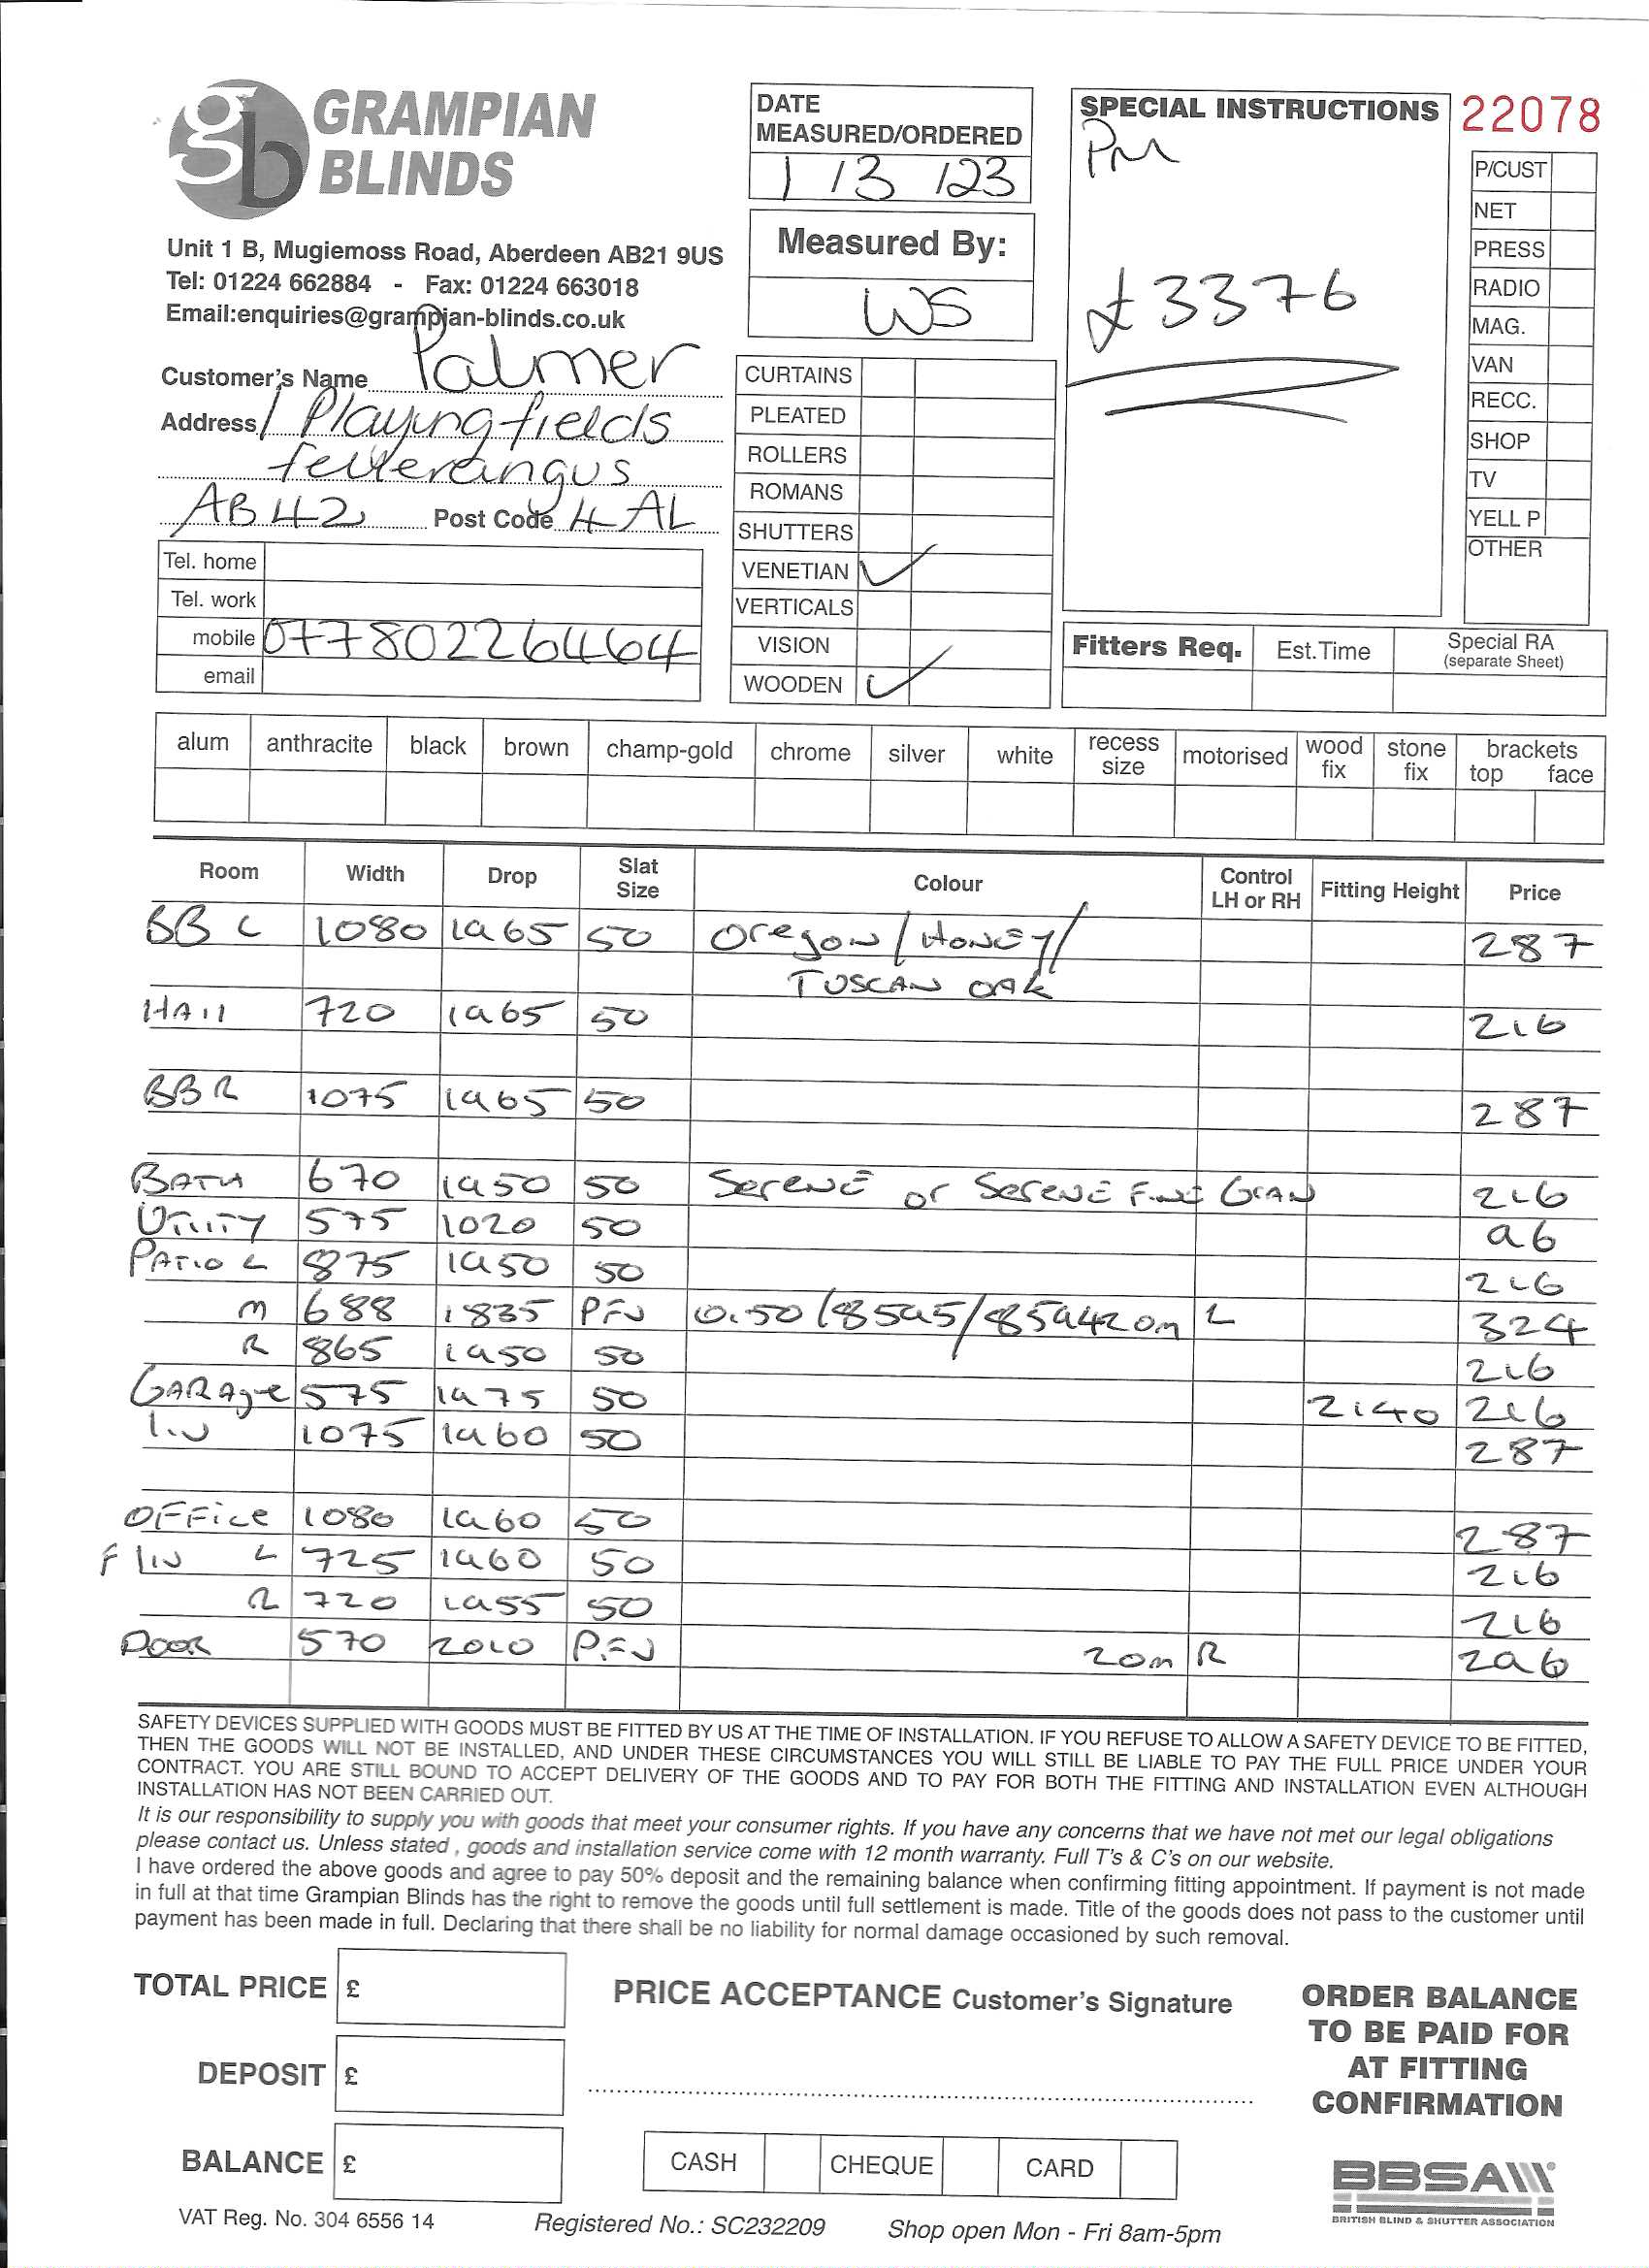 gb GRAMPIAN BLINDS
Unit 1 B, Mugiemoss Road, Aberdeen AB21 9US
Tel: 01224 662884 - Fax: 01224 663018
Email:enquiries@grampian-blinds.co.uk
DATE MEASURED/ORDERED
1/3/23
Measured By:
WS
SPECIAL INSTRUCTIONS
PM
£3376
22078
P/CUST
NET
PRESS
RADIO
MAG.
VAN
RECC.
SHOP
TV
YELL P
OTHER
Customer's Name Palmer
Address 1 Playingfields
fetterangus
AB42 Post Code 4AL
Tel. home
Tel. work
mobile 07780226464
email
CURTAINS
PLEATED
ROLLERS
ROMANS
SHUTTERS
VENETIAN ✓
VERTICALS
VISION
WOODEN ✓
Fitters Req. Est.Time Special RA (separate Sheet)
alum anthracite black brown champ-gold chrome silver white recess size motorised wood fix stone fix brackets top face
Room Width Drop Slat Size Colour Control LH or RH Fitting Height Price
BB L 1080 1965 50 Oregon/Honey/ 287
TUSCAN OAK
HAll 720 1965 50 216
BB R 1075 1965 50 287
BATH 670 1950 50 Serene or Serene Fine Gran 216
Utility 575 1020 50 96
Patio L 875 1950 50 216
M 688 1835 PFV 0150/8595/8594 20m L 324
R 865 1950 50 216
GARAge 575 1975 50 2140 216
LIV 1075 1960 50 287
OFFice 1080 1960 50 287
F LIV L 725 1960 50 216
R 720 1955 50 216
Door 570 2010 PFV 20m R 296
SAFETY DEVICES SUPPLIED WITH GOODS MUST BE FITTED BY US AT THE TIME OF INSTALLATION. IF YOU REFUSE TO ALLOW A SAFETY DEVICE TO BE FITTED,
THEN THE GOODS WILL NOT BE INSTALLED, AND UNDER THESE CIRCUMSTANCES YOU WILL STILL BE LIABLE TO PAY THE FULL PRICE UNDER YOUR
CONTRACT. YOU ARE STILL BOUND TO ACCEPT DELIVERY OF THE GOODS AND TO PAY FOR BOTH THE FITTING AND INSTALLATION EVEN ALTHOUGH
INSTALLATION HAS NOT BEEN CARRIED OUT.
It is our responsibility to supply you with goods that meet your consumer rights. If you have any concerns that we have not met our legal obligations
please contact us. Unless stated , goods and installation service come with 12 month warranty. Full T's & C's on our website.
I have ordered the above goods and agree to pay 50% deposit and the remaining balance when confirming fitting appointment. If payment is not made
in full at that time Grampian Blinds has the right to remove the goods until full settlement is made. Title of the goods does not pass to the customer until
payment has been made in full. Declaring that there shall be no liability for normal damage occasioned by such removal.
TOTAL PRICE £
DEPOSIT £
BALANCE £
PRICE ACCEPTANCE Customer's Signature
CASH CHEQUE CARD
ORDER BALANCE
TO BE PAID FOR
AT FITTING
CONFIRMATION
BBSA
BRITISH BLIND & SHUTTER ASSOCIATION
VAT Reg. No. 304 6556 14 Registered No.: SC232209 Shop open Mon - Fri 8am-5pm